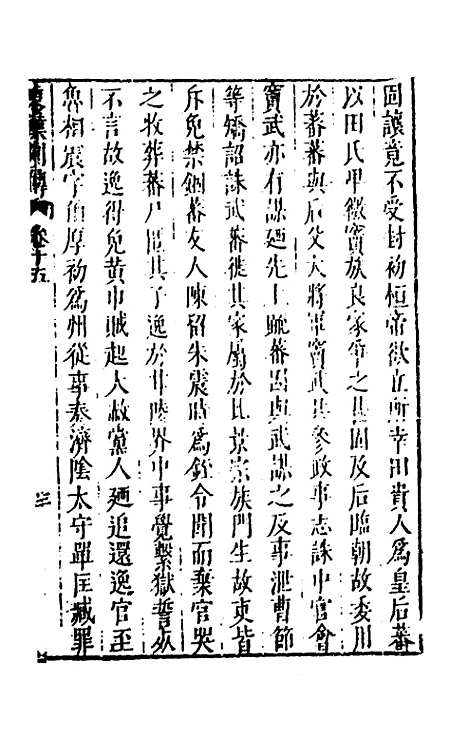 固讓竟不受封初桓帝欲立所幸田貴人爲皇后蕃
以田氏卑微竇族良家爭之甚固及后臨朝故委用
於蕃蕃與后父大將軍竇武共參政事志誅中官會
竇武亦有謀廼先上疏蕃因與武謀之及事泄曹節
等矯詔誅武蕃徙其家屬於比景宗族門生故吏皆
斥免禁錮蕃友人陳留朱震時爲銍令聞而棄官哭
之收葬蕃尸匿其子逸於甘陵界中事覺繫獄誓死
不言故逸得免黄巾賊起大赦黨人廼追還逸官至
魯相震字伯厚初爲州從事奏濟陰太守單匡贓罪
卷十五